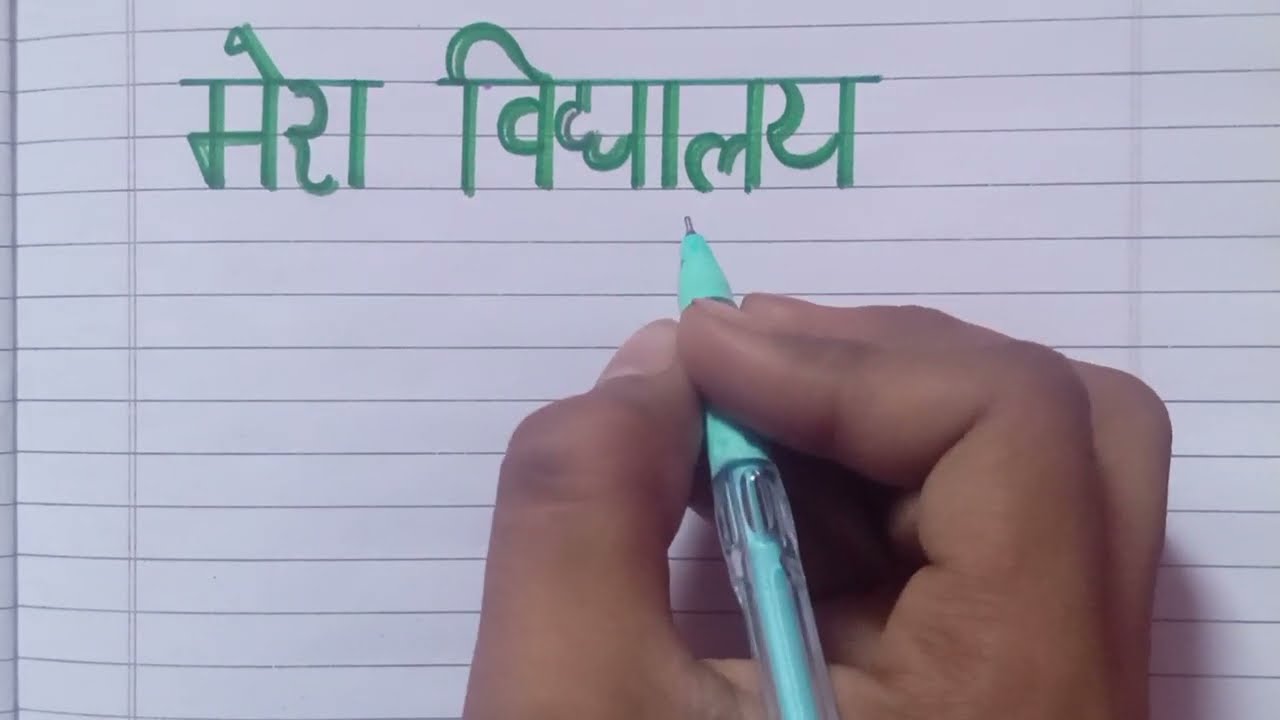 मेरा विद्यालय